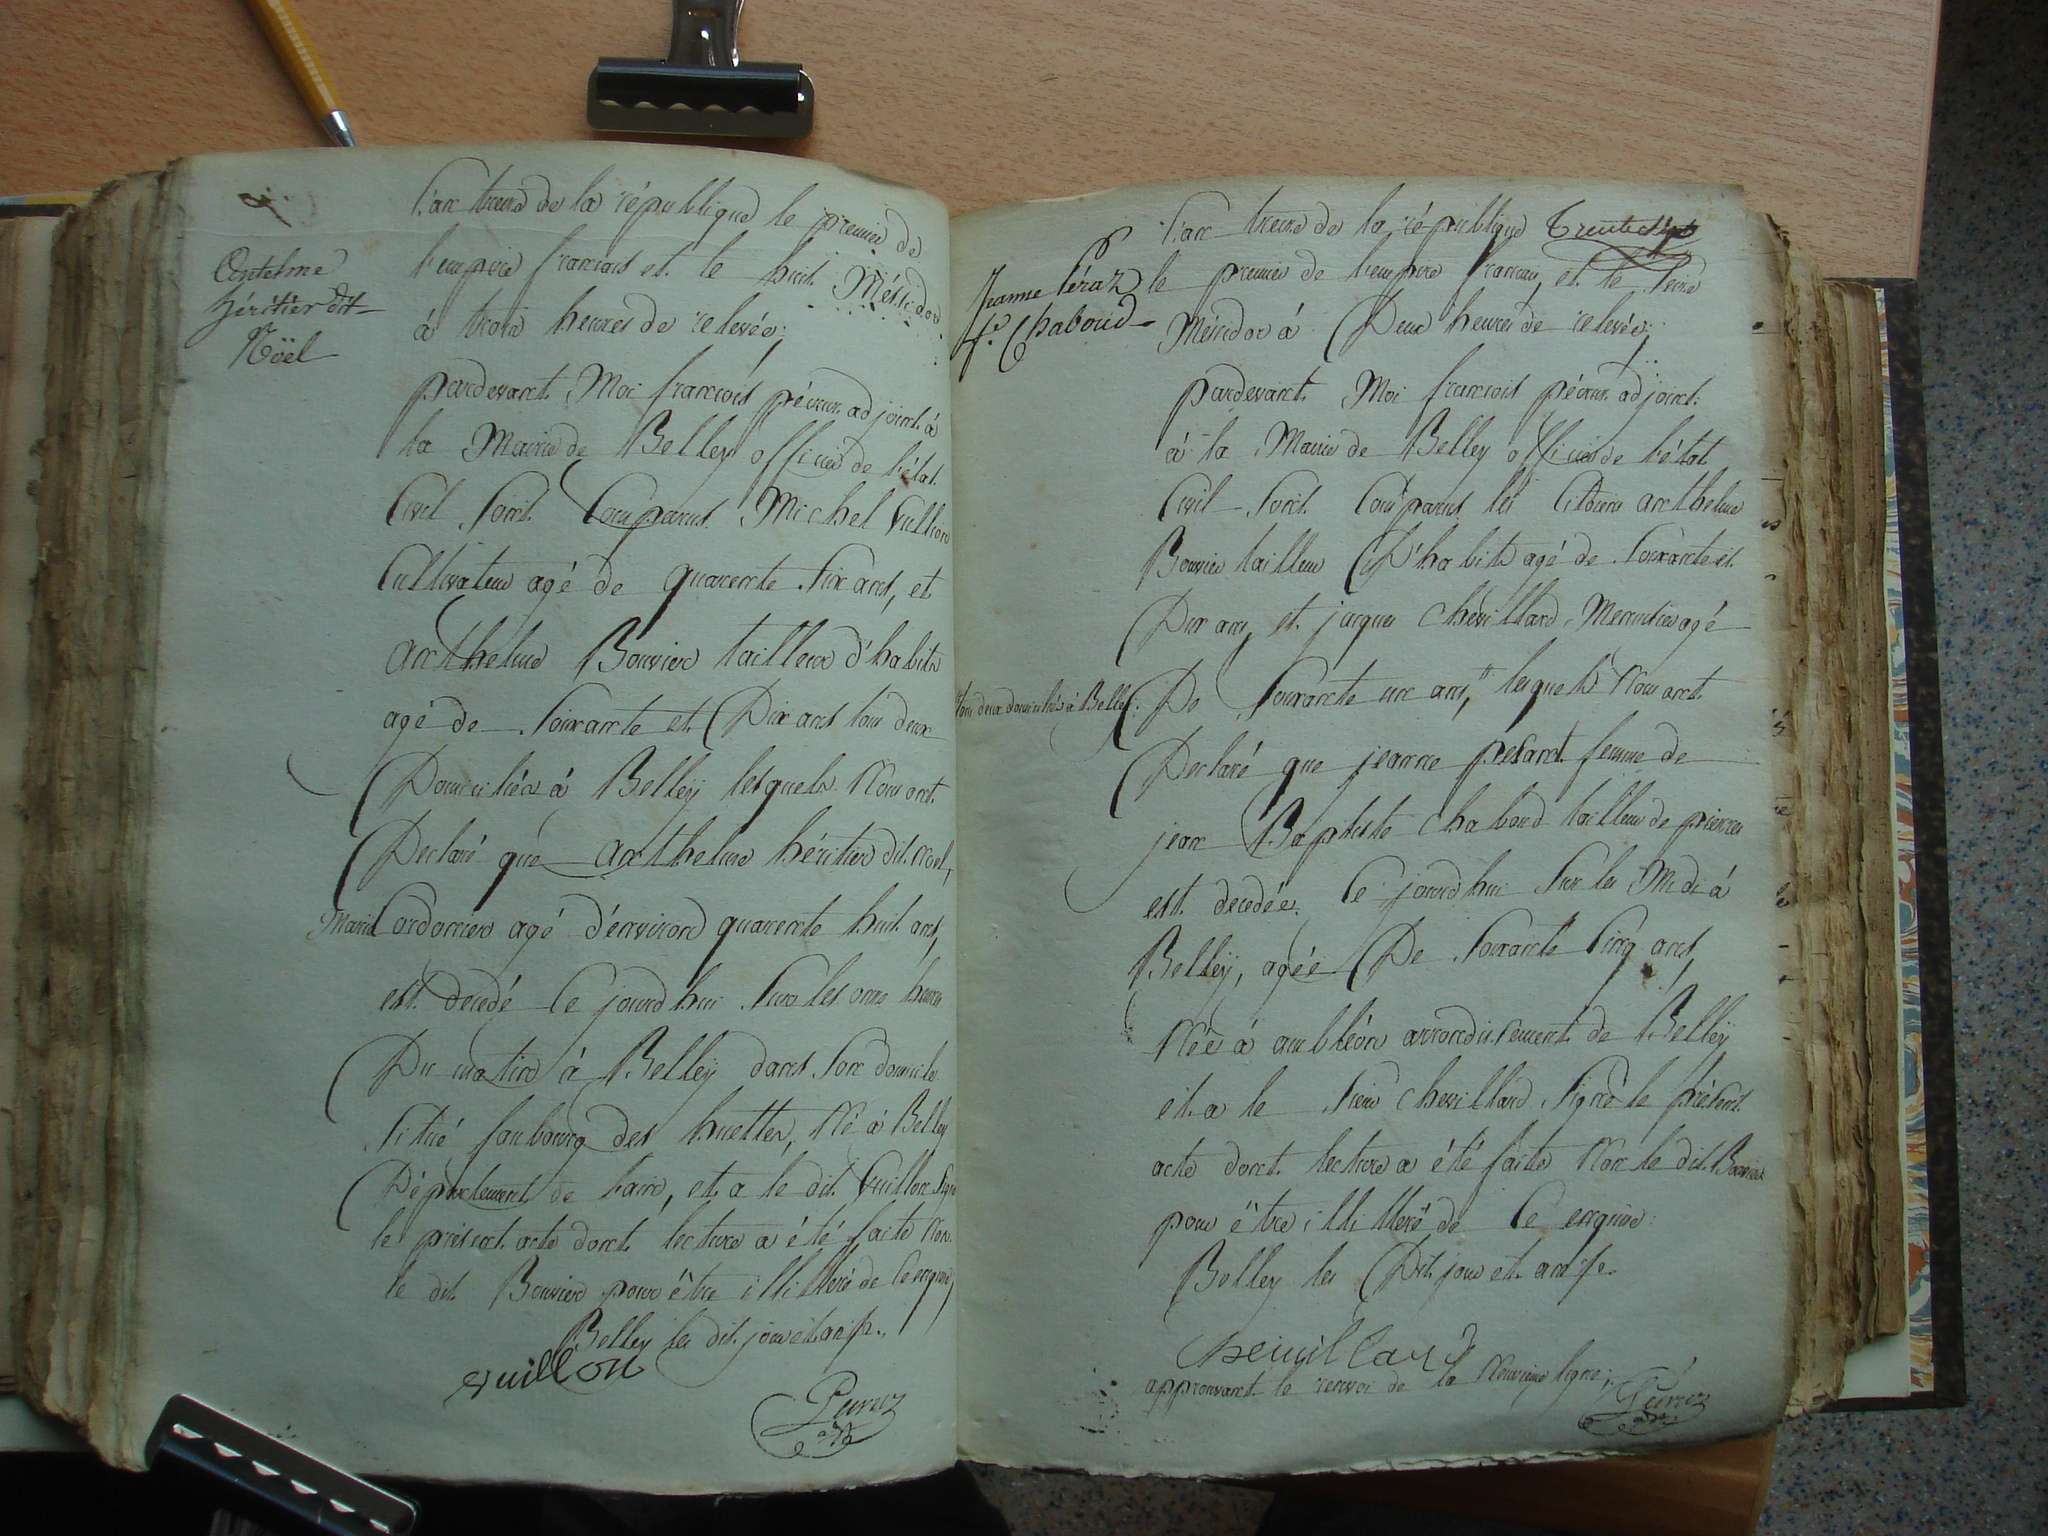 Antelme
héritier dit
Nöel
L'an treize de la république le premier de
l'empire francois et le huit Méssidor
à trois heures de relevée;
pardevant Moi francois péroux adjoint à
la Mairie de Belley officier de l'état
Civil Sont Comparus Michel Vuillion
Cultivateur agé de quarente Six ans, et
anthelme Bouvier tailleur d'habits
agé de Soixante et Dix ans tous deux
Domiciliés à Belleÿ lesquels Nous ont
Déclaré que anthelme héritier dit Noel,
Marié Cordonnier agé d'environ quarente huit ans,
est decedé Ce jourd'hui Sur les onze heures
Du matin à Belleÿ dans Son domicile
Situé faubourg des huottes, Né à Belley
Département de l'ain, et a le dit Vuillon Signé
le présent acte dont lecture a été faite Non
le dit Bouvier pour être illitteré de Ce enquis,
Belley les dit jour et an
vuillon
Jeanne Péraz
f.e Chaboud
L'an treize de la république Trente Sept
le premier de l'empire francais, et le Seize
Méssidor à Deux heures de relevée;
pardevant Moi francois péroux adjoint
à la Mairie de Belley officier de l'état
Civil Sont Comparus les Citoiens anthelme
Bouvier tailleur D'habits agé de Soixante et
Dix ans, et jacques Chevillard Menuisier agé
De Soixante un ans, lesquels Nous ont
tous deux domiciliés à Belley.
Déclaré que jeanne pesant femme de
jean Baptiste Chaboud tailleur de pierres
est decedée Ce jourd'hui Sur les Midi à
Belleÿ, agée De Soixante Cinq ans,
Née à ambléon arrondissement de Belleÿ
et a le Sieur Chevillard Signé le présent
acte dont lecture a été faite Non le dit Bouvier
pour être illitteré de Ce enquis:
Belley les Dit jour et an
Cheuillard
approuvant le renvoi de la Neuvieme ligne;